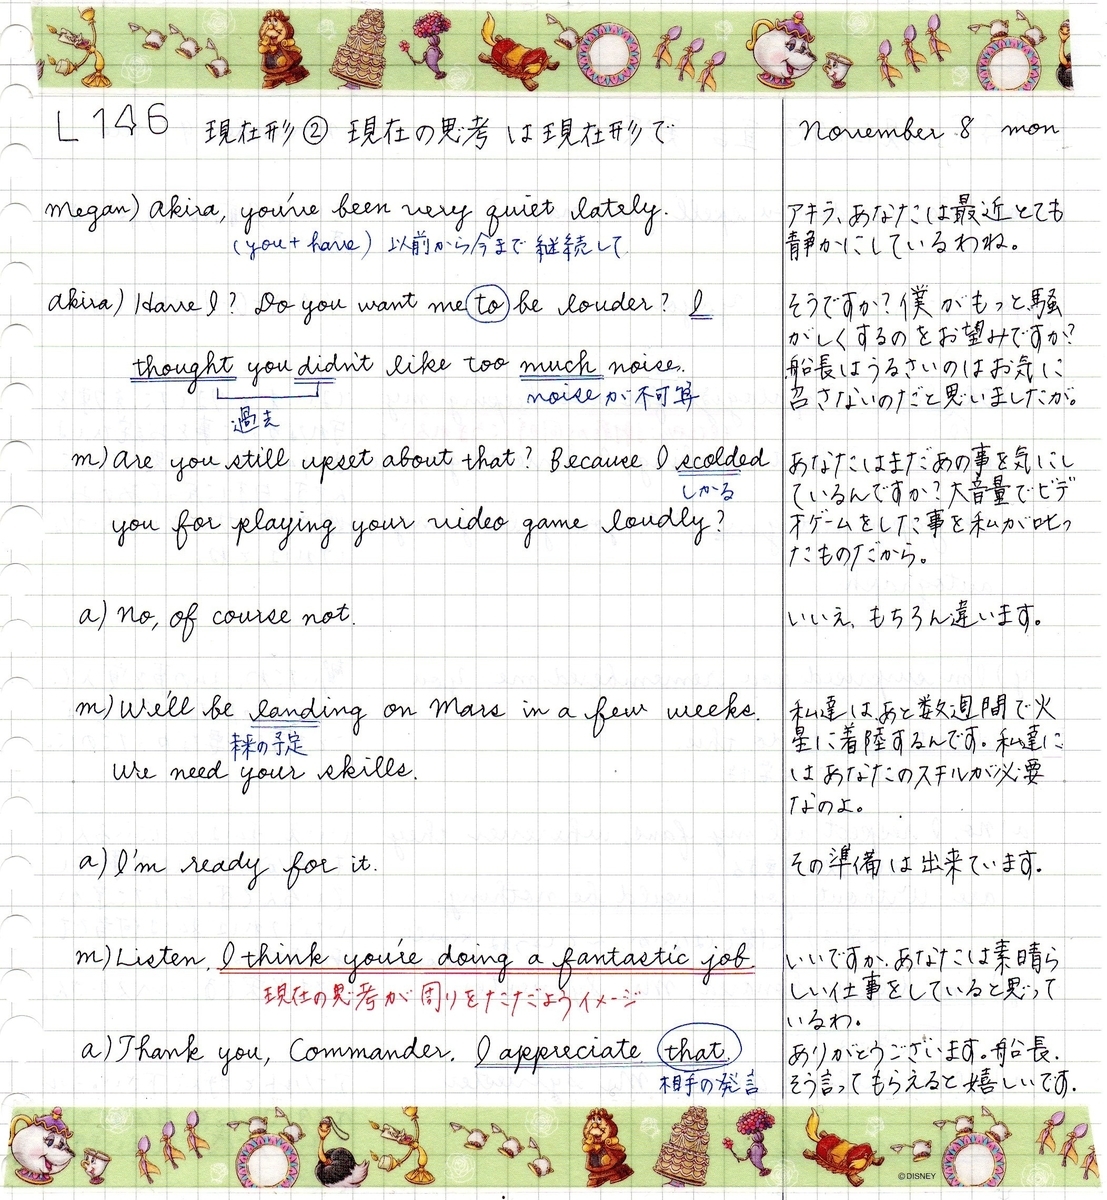 L146 現在形② 現在の思考は現在形で
November 8 mon
Megan) Akira, you've been very quiet lately.
(you + have) 以前から今まで継続して
アキラ、あなたは最近とても
静かにしているわね。
Akira) Have I? Do you want me to be louder? I
thought you didn't like too much noise.
過去
noiseが不可算
そうですか?僕がもっと騒
がしくするのをお望みですか?
船長はうるさいのはお気に
召さないのだと思いましたが。
m) Are you still upset about that? Because I scolded
しかる
you for playing your video game loudly?
あなたはまだあの事を気にし
ているんですか?大音量でビデ
オゲームをした事を私が叱っ
たものだから。
a) No, of course not.
いいえ、もちろん違います。
m) We'll be landing on Mars in a few weeks.
未来の予定
We need your skills.
私達はあと数週間で火
星に着陸するんです。私達に
はあなたのスキルが必要
なのよ。
a) I'm ready for it.
その準備は出来ています。
m) Listen. I think you're doing a fantastic job.
現在の思考が周りをただようイメージ
いいですか、あなたは素晴ら
しい仕事をしていると思って
いるわ。
a) Thank you, Commander. I appreciate that.
相手の発言
ありがとうございます。船長.
そう言ってもらえると嬉しいです.
©DISNEY